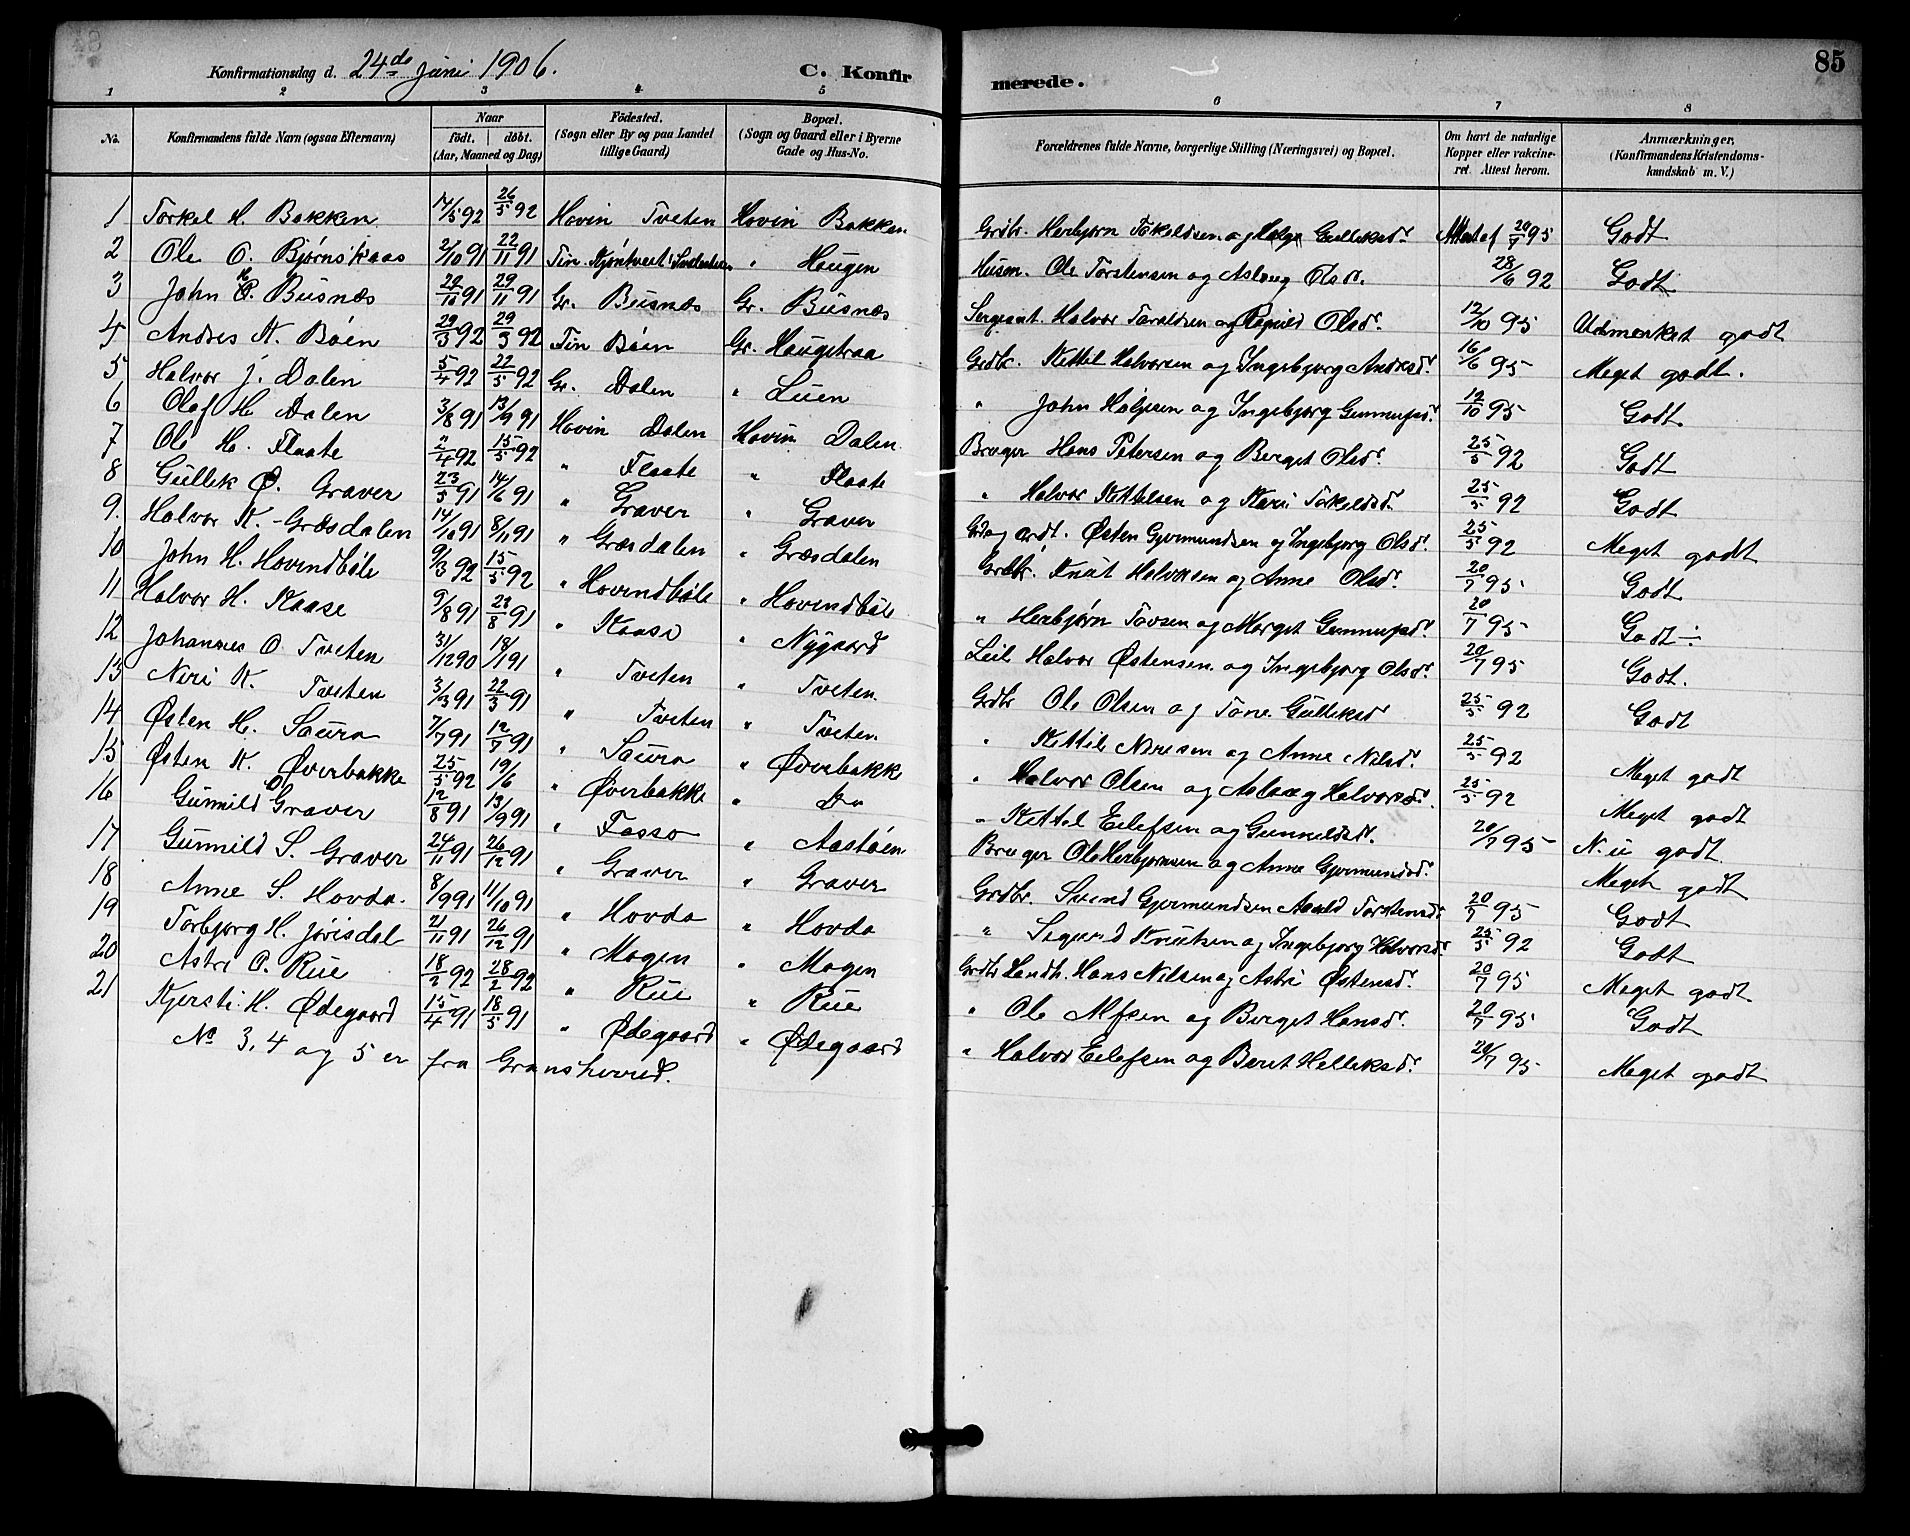 Konfirmationsdag d. 24de juni 1906. C. Konfir merede. 85
1 2 3 4 5 6 7 8
No. Konfirmandens fulde Navn (ogsaa Efternavn) Naar født. døbt. (Aar, Maaned og Dag) Fødested. (Sogn eller By og paa Landet tillige Gaard) Bopæl. (Sogn og Gaard eller i Byerne Gade og Hus-No. Forældrenes fulde Navne, borgerlige Stilling (Næringsvei) og Bopæl. Om havt de naturlige Kopper eller vakcineret. Attest herom. Anmærkninger. (Konfirmandens Kristendomskundskab m. V.)
1 Torkel H. Bakken 17/5 92 26/5 92 Hovin Tveten Hovin Bakken Grdbr. Herbjørn Tokeldsen og Helge Gulleksdr. Attest af 20/7 95 Godt
2 Ole O. Bjørnskaas 2/10 91 22/11 91 Tin " Haugen Husm. Ole Torstensen og Aslaug Olsdr. 28/6 92 Godt
3 John H. Busnæs 20/10 91 29/11 91 Gr. Busnæs Gr. Busnæs Sergeant. Halvor Taraldsen og Ragnild Olsdr. 12/10 95 Udmerket godt
4 Andres K. Bøen 29/3 92 29/3 92 Tin Bøen Gr. Haugetraa Grdbr. Kettil Halvorsen og Ingebjørg Andresdr. 16/6 95 Meget godt.
5 Halvor J. Dalen 5/4 92 22/5 92 Gr. Dalen " Luen " John Halvorsen og Ingebjørg Gunnulfsdr. 12/10 95 Godt
6 Olaf H. Dalen 3/8 91 13/9 91 Hovin Dalen Hovin Dalen Bruger Hans Petersen og Berget Olsdr. 25/5 92 Godt
7 Ole H. Flaate 2/4 92 15/5 92 " Flaate " Flaate " Halvor Kettelsen og Kari Torkeldsdr. 25/5 92 Godt
8 Gullek Ø. Graver 23/5 91 14/6 91 " Graver " Graver Østen Gjermundsen og Ingebjørg Olsdr. 25/5 92 Meget godt
9. Halvor K. Græsdalen 14/10 91 8/11 91 " Græsdalen " Græsdalen Grdbr. Knut Halvorsen og Anne Olsdr. 20/7 95 Godt
10 John H. Hovindbøle 9/3 92 15/5 92 " Hovindbøle " Hovindbøle " Herbjørn Tovsen og Marget Gunnulfsdr. 20/7 95 Godt ÷
11 Halvor H. Kaase 9/8 91 23/8 91 " Kaase " Nygaard Leil Halvor Østensen og Ingebjørg Olsdr. 20/7 95 Godt.
12 Johannes O. Tveten 31/12 90 18/1 91 " Tveten " Tveten Grdbr Ole Olsen og Tone Gulleksdr 25/5 92 Godt
13 Neri K. Tveten 3/3 91 22/3 91 " Tveten " Tveten " Kittil Nirisen og Anne Nilsdr. 25/5 92 Meget godt
14 Østen H. Saura 7/7 91 12/7 91 " Saura " Øverbakke " Halvor Olsen og Aslaug Halvorsdr. 25/5 92 Meget godt
15 Østen K. Øverbakke 25/5 92 19/6 " Øverbakke " Do " Kettel Eilefsen og Gunnildsdr. 20/7 95 N. u godt
16 Gunnild O Graver 12/8 91 13/9 91 " Fosso " Aastøen Bruger Ole Herbjørnsen og Anne Gjermundsdr. Meget godt
17 Gunnild S. Graver 24/11 91 26/12 91 " Graver " Graver Grdbr. Svend Gjermundsen Torstensdr. 20/7 95 Godt
18 Anne S. Hovda 8/9 91 11/10 91 " Hovda " Hovda " Sigurd Knutsen og Ingebjørg Halvorsdr. 25/5 92 Godt
19 Torbjørg H. Jørisdal 21/11 91 26/12 91 " Mogen " Mogen Grdbr Landh. Hans Nilsen og Astri Østensdr. 20/7 95 Meget godt
20 Astri O. Rue 18/2 92 28/2 92 " Rue " Rue " Ole Alfsen og Berget Hansdr. 20/7 95 Godt
21 Kjersti H. Ødegaard 15/4 91 18/5 91 " Ødegaard " Ødegaard " Halvor Eilefsen og Beret Helleksdr. 20/7 95 Meget godt
No 3, 4 og 5 er fra Gransherred.